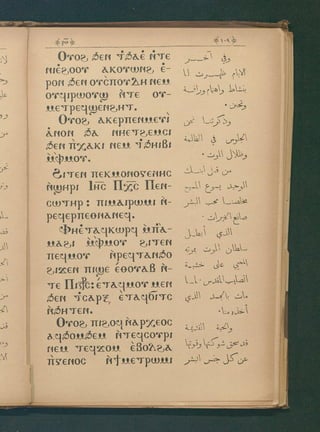 Ⲟⲩⲟϩ ϧⲉⲛ ⲧϧⲁⲉ̀ ⲛ̀ⲧⲉ
ⲛⲓⲉ̀ϩⲟⲟⲩ ⲁⲕⲟⲩⲱⲛϩ ⲉ̀-
ⲣⲟⲛ ϧⲉⲛ ⲟⲩⲥⲡⲟⲩⲇⲏ ⲛⲉⲙ
ⲟⲩϥⲓⲣⲱⲟⲩϣ ⲛ̀ⲧⲉ ⲟⲩ-
ⲙⲉⲧⲣⲉϥϣⲉⲛϩⲏⲧ.
Ⲟⲩⲟϩ ⲁⲕⲉⲣⲡⲉⲛⲙⲉⲩⲓ̀
ⲁ̀ⲛⲟⲛ ϧⲁ ⲛⲏⲉⲧϩⲉⲙⲥⲓ
ϧⲉⲛ ⲡ̀ⲭⲁⲕⲓ ⲛⲉⲙ ⲧ̀ϧⲏⲓⲃⲓ
ⲙ̀ⲫⲙⲟⲩ.
Ϩⲓⲧⲉⲛ ⲡⲉⲕⲙⲟⲛⲟⲅⲉⲛⲏⲥ
ⲛ̀ϣⲏⲣⲓ Ⲓⲏ̅ⲥ̅ Ⲡⲭ̅ⲥ̅ Ⲡⲉⲛ-
ⲥⲱⲧⲏⲣ : ⲡⲓⲙⲁⲓⲣⲱⲙⲓ ⲛ̀-
ⲣⲉϥⲉⲣⲡⲉⲑⲛⲁⲛⲉϥ.
Ⲫⲏⲉ̀ⲧⲁϥⲕⲱⲣϥ ⲙ̀ⲡ̀ⲁ-
ⲙⲁϩⲓ ⲙ̀ⲫⲙⲟⲩ ϩⲓⲧⲉⲛ
ⲡⲉϥⲙⲟⲩ ⲛ̀ⲣⲉϥⲧⲁⲛϧⲟ
ϩⲓϫⲉⲛ ⲡⲓϣⲉ ⲉⲑⲟⲩⲁⲃ ⲛ̀-
ⲧⲉ ⲉ̀ⲧⲁϥⲙⲟⲩ ⲙⲉⲛ
ϧⲉⲛ ⲧ̀ⲥⲁⲣⲝ ⲉ̀ⲧⲁϥϭⲓⲧⲥ
ⲛ̀ϧⲏⲧⲉⲛ.
Ⲟⲩⲟϩ ⲡⲓϩⲟϥ ⲛ̀ⲁⲣⲭⲉⲟⲥ
ⲁϥϧⲟⲙϧⲉⲙ ⲛ̀ⲧⲉϥⲥⲟⲩⲣⲓ
ⲛⲉⲙ ⲧⲉϥϫⲟⲙ ⲉ̀ⲃⲟⲗϩⲁ
ⲡ̀ⲅⲉⲛⲟⲥ ⲛ̀ϯⲙⲉⲧⲣⲱⲙⲓ
١٠٩
وفي آخر
الايام ظهرت لنا
بنشاط واهتمام ورأفة
وتحنن.
وذكرتنا نحن
الجلوس في الظلمة
وظلال الموت.
من قبل ابنك
الوحيد يسوع المسيح
مخلصنا محب البشر
صانع الخيرات.
الذي أبطل
سلطان الموت بموته
المحيي على خشبة
الصليب المقدس. لما
مات بالجسد الذي
أخذه منا.
والحية القديمة
قد سحق شوكتها وقوتها
عن كل جنس البشر